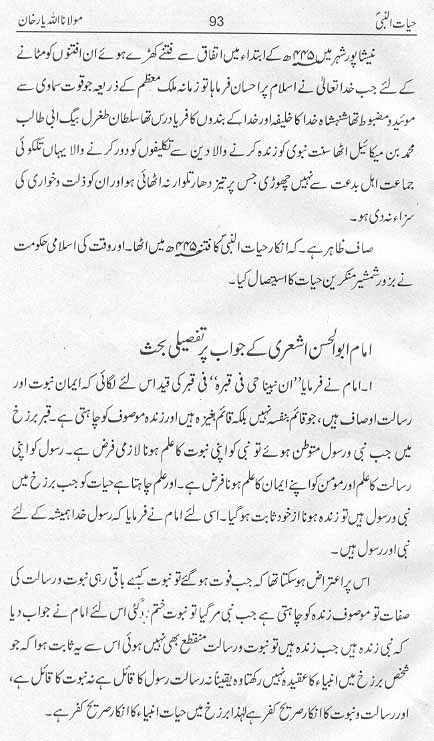 حیات النبیؐ 93 مولانا اللہ یار خان
نیشاپور شہر میں ۴۴۵ھ کے ابتداء میں اتفاق سے فتنے کھڑے ہوئے ان افتنوں کو مٹانے
کے لئے جب خدا تعالیٰ نے اسلام پر احسان فرمایا تو زمانہ ملک معظم کے ذریعہ جو قوت سماوی سے
موئید و مضبوط تھا شہنشاہ خدا کا خلیفہ اور خدا کے بندوں کا فریاد رس تھا سلطان طغرل بیگ ابی طالب
محمد بن میکائیل اٹھا سنت نبوی کو زندہ کرنے والا دین سے تکلیفوں کو دور کرنے والا یہاں تک کوئی
جماعت اہل بدعت سے نہیں چھوڑی جس پر تیز دھار تلوار نہ اٹھائی ہو اور ان کو ذلت و خواری کی
سزاء نہ دی ہو۔
صاف ظاہر ہے۔ کہ انکار حیات النبیؐ کا فتنہ ۴۴۵ھ میں اٹھا۔ اور وقت کی اسلامی حکومت
نے بزور شمشیر منکرین حیات کا استیصال کیا۔
امام ابوالحسن اشعری کے جواب پر تفصیلی بحث
۱۔ امام نے فرمایا ’’ان نبینا حی فی قبرہ‘‘ فی قبر کی قید اس لئے لگائی کہ ایمان نبوت اور
رسالت اوصاف ہیں، جو قائم بنفسہ نہیں بلکہ قائم بغیرہ ہیں اور زندہ موصوف کو چاہتی ہے۔ قبر برزخ
میں جب نبی و رسول متوطن ہوئے تو نبی کو اپنی نبوت کا علم ہونا لازمی فرض ہے۔ رسول کو اپنی
رسالت کا علم اور مومن کو اپنے ایمان کا علم ہونا فرض ہے۔ اور علم چاہتا ہے حیات کو جب برزخ میں
نبی و رسول ہیں تو زندہ ہونا از خود ثابت ہو گیا۔ اسی لئے امام نے فرمایا کہ رسول خدا ہمیشہ کے لئے
نبی اور رسول ہیں۔
اس پر اعتراض ہو سکتا تھا کہ جب فوت ہو گئے تو نبوت کیسے باقی رہی نبوت و رسالت کی
صفات تو موصوف زندہ کو چاہتی ہے جب نبی مر گیا تو نبوت ختم ہو گئی اس لئے امام نے جواب دیا
کہ نبی زندہ ہیں جب زندہ ہیں تو نبوت و رسالت منقطع بھی نہیں ہوئی اس سے یہ ثابت ہوا کہ جو
شخص برزخ میں انبیاء کا عقیدہ نہیں رکھتا وہ یقیناً نہ رسالت رسول کا قائل ہے نہ نبوت کا قائل ہے،
اور رسالت و نبوت کا انکار صریح کفر ہے لہٰذا برزخ میں حیات انبیاء کا انکار صریح کفر ہے۔